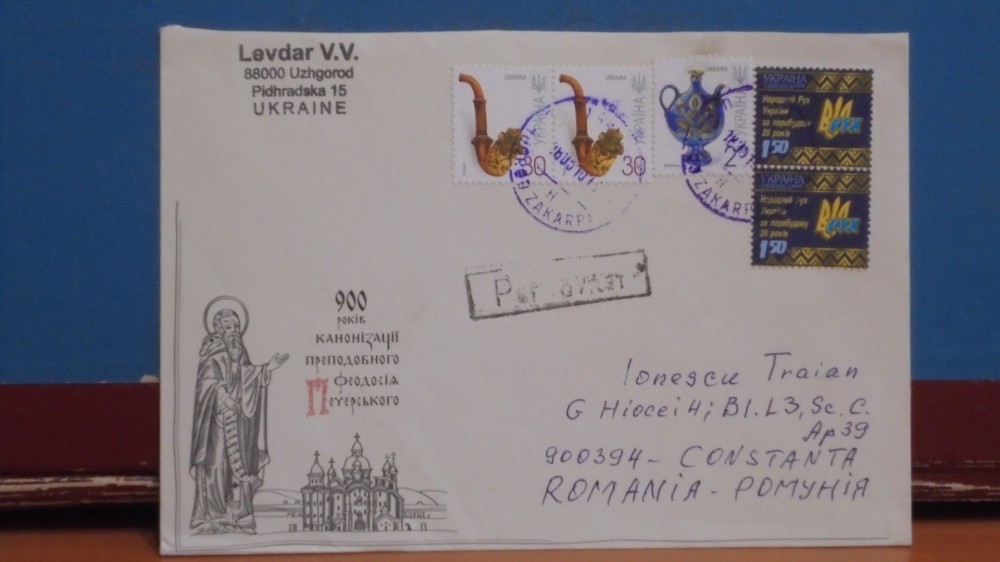 Levdar V.V.
88000 Uzhgorod
Pidhradska 15
UKRAINE
UKRAINE
УКРАЇНА
30
UKRAINE
УКРАЇНА
30
УКРАЇНА
2
УКРАЇНА
Народний Рух
України
за перебудову
20 років
РУХ
1.50
УКРАЇНА
Народний Рух
України
за перебудову
20 років
РУХ
1.50
ZAKARPA
ZAKARP
Par avion
900
років
канонізації
преподобного
Феодосія
Печерського
Ionescu Traian
G Hiocei 4; Bl. L3, Sc. C.
Ap 39
900394 - CONSTANTA
ROMANIA - РОМУНІЯ